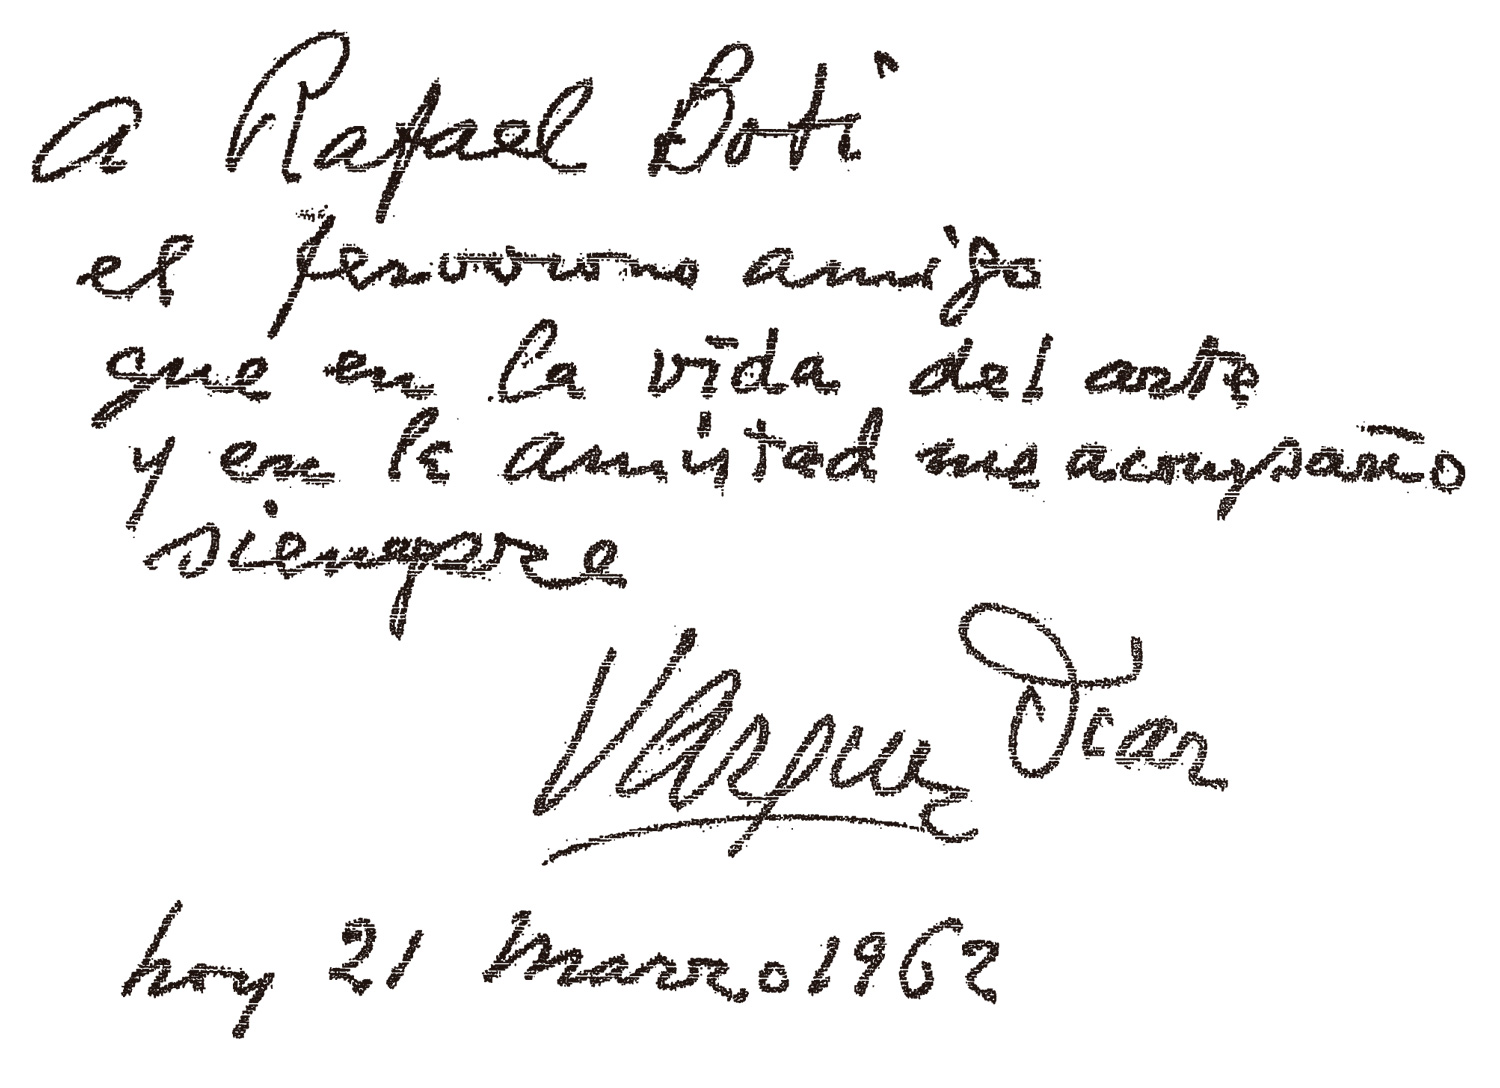 A Rafael Botí
el fervoroso amigo
que en la vida del arte
y en la amistad me acompañó
siempre
Vázquez Díaz
hoy 21 Marzo 1962